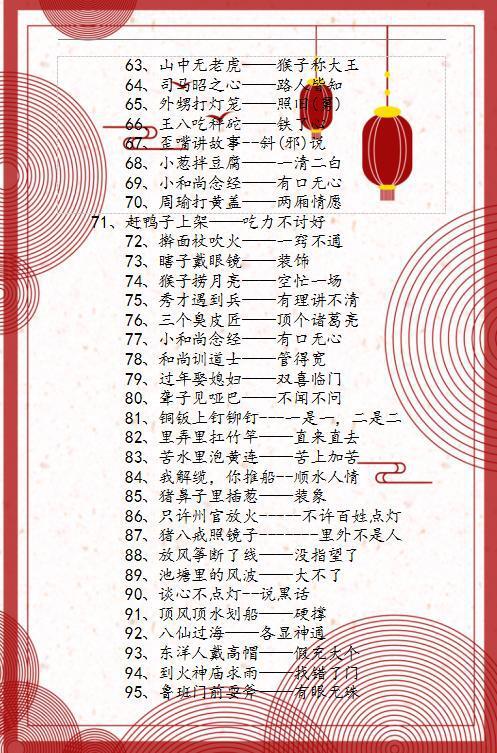 63、山中无老虎——猴子称大王
64、司马昭之心——路人皆知
65、外甥打灯笼——照旧(舅)
66、王八吃秤砣——铁了心
67、歪嘴讲故事--斜(邪)说
68、小葱拌豆腐——一清二白
69、小和尚念经——有口无心
70、周瑜打黄盖——两厢情愿
71、赶鸭子上架——吃力不讨好
72、擀面杖吹火——一窍不通
73、瞎子戴眼镜——装饰
74、猴子捞月亮——空忙一场
75、秀才遇到兵——有理讲不清
76、三个臭皮匠——顶个诸葛亮
77、小和尚念经——有口无心
78、和尚训道士——管得宽
79、过年娶媳妇——双喜临门
80、聋子见哑巴——不闻不问
81、铜钣上钉铆钉---一是一，二是二
82、里弄里扛竹竿——直来直去
83、苦水里泡黄连——苦上加苦
84、我解缆，你推船--顺水人情
85、猪鼻子里插葱——装象
86、只许州官放火-----不许百姓点灯
87、猪八戒照镜子-------里外不是人
88、放风筝断了线——没指望了
89、池塘里的风波——大不了
90、谈心不点灯--说黑话
91、顶风顶水划船——硬撑
92、八仙过海——各显神通
93、东洋人戴高帽——假充大个
94、到火神庙求雨——找错了门
95、鲁班门前耍斧——有眼无珠